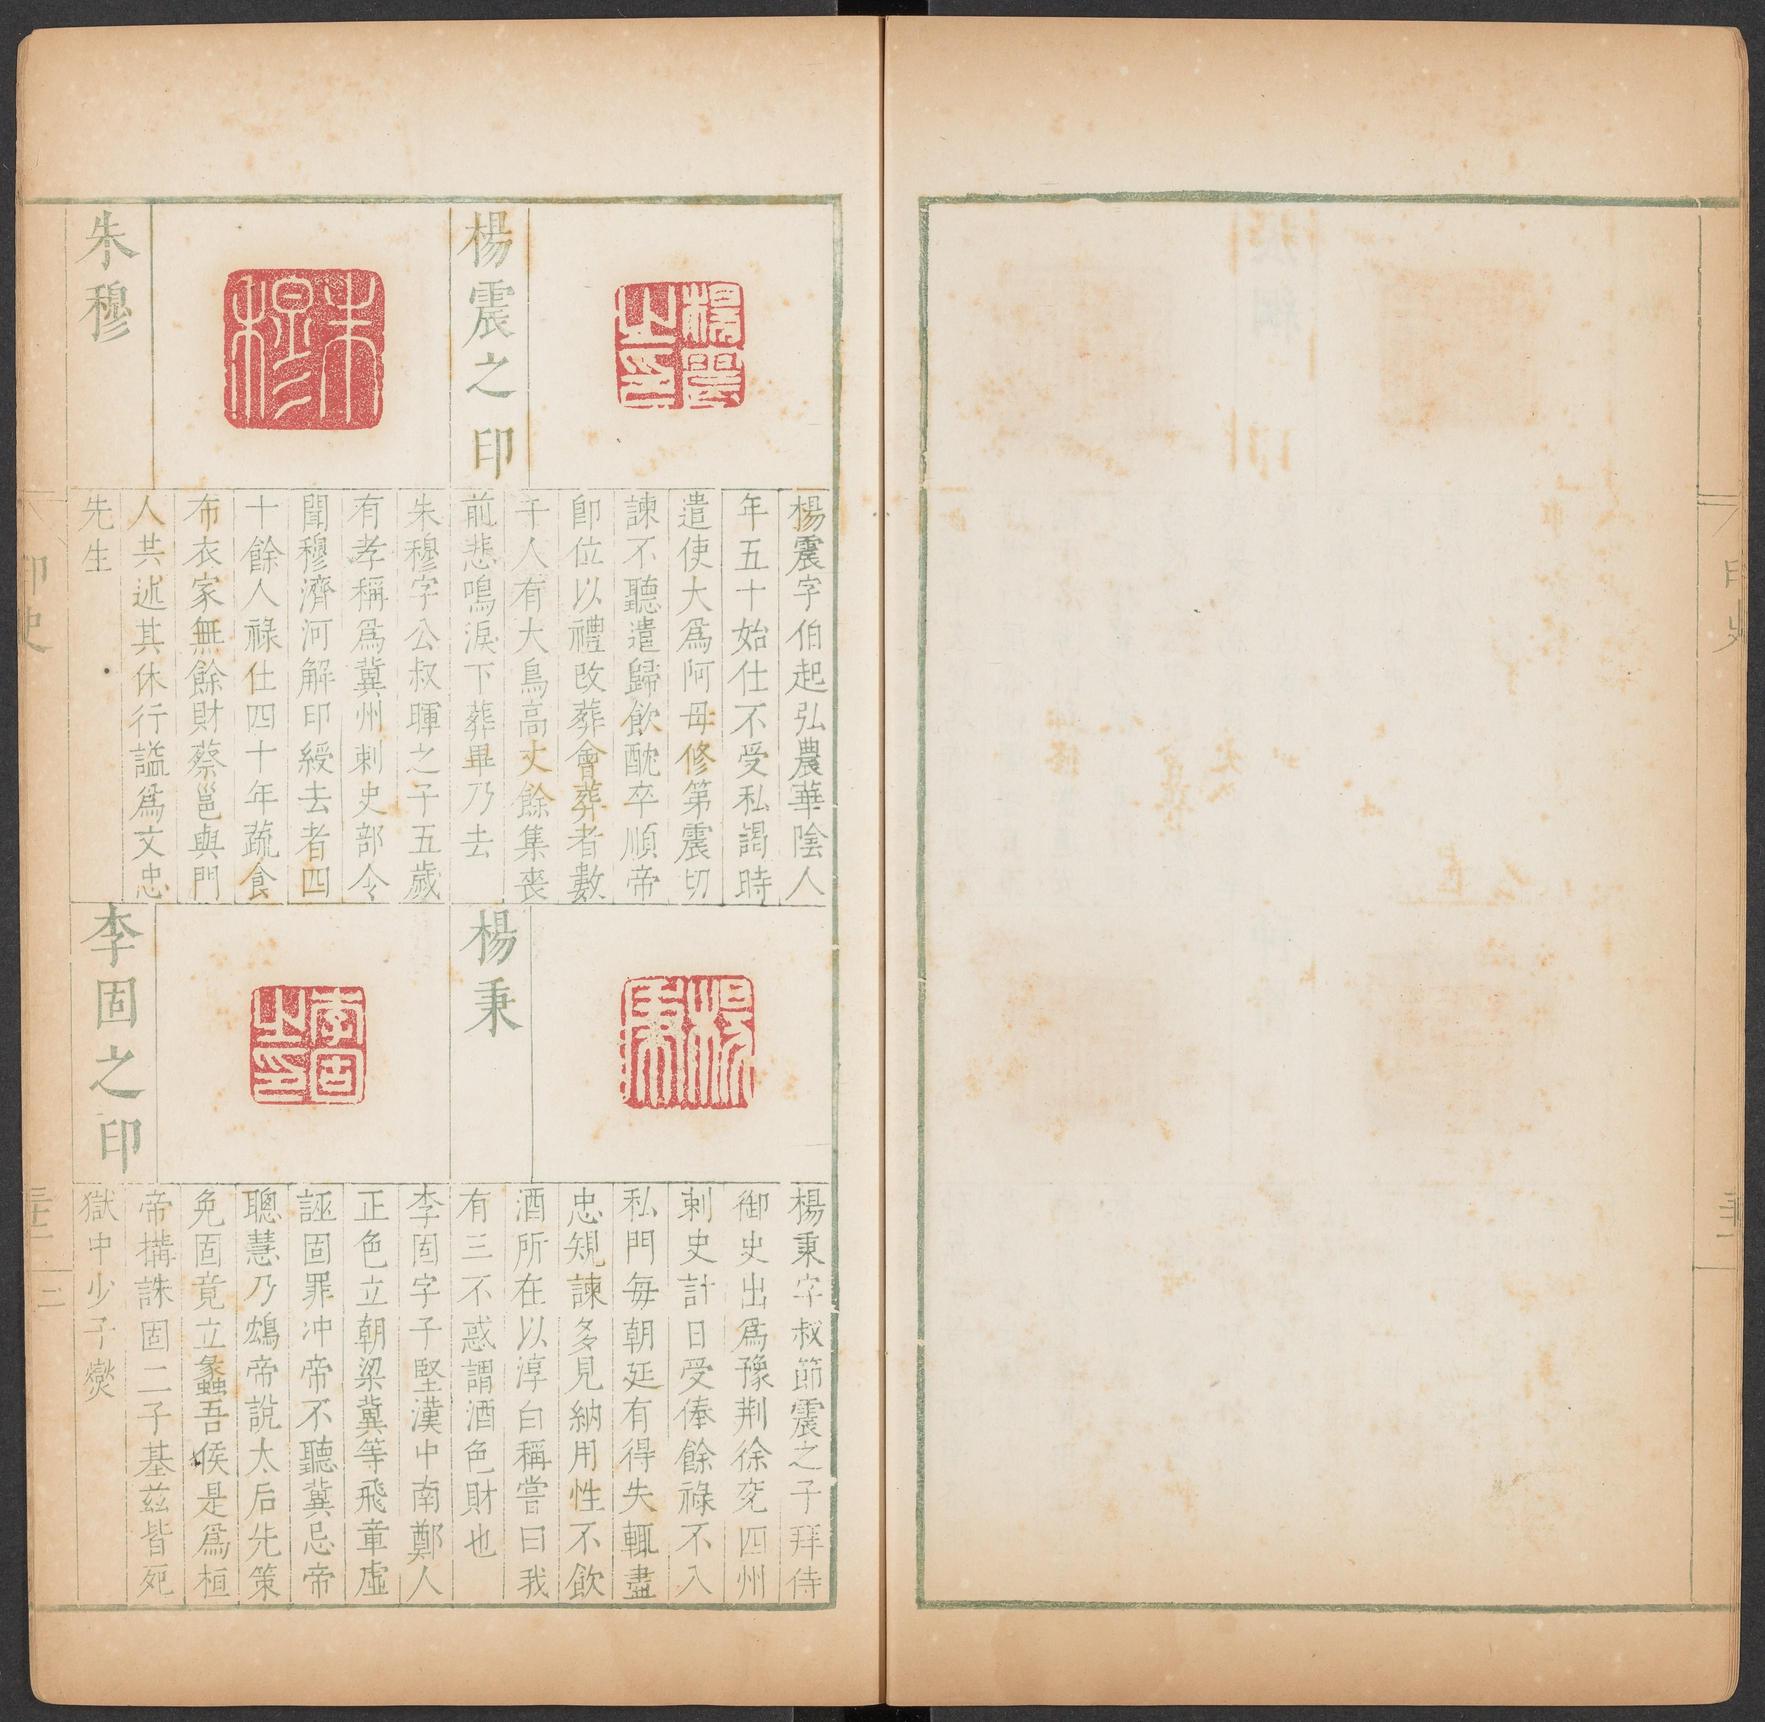 楊震之印
楊震字伯起弘農華陰人
年五十始仕不受私謁時
遣使大爲阿母修第震切
諫不聽遣歸飲酖卒順帝
卽位以禮改葬會葬者數
千人有大鳥高丈餘集喪
前悲鳴淚下葬畢乃去
朱穆
朱穆字公叔暉之子五歲
有孝稱爲冀州刺史部令
聞穆濟河解印綬去者四
十餘人祿仕四十年蔬食
布衣家無餘財蔡邕與門
人共述其休行謚爲文忠
先生
楊秉
楊秉字叔節震之子拜侍
御史出爲豫荆徐兖四州
刺史計日受俸餘祿不入
私門每朝廷有得失輒盡
忠規諫多見納用性不飲
酒所在以淳白稱嘗曰我
有三不惑謂酒色財也
李固之印
李固字子堅漢中南鄭人
正色立朝梁冀等飛章虛
誣固罪冲帝不聽冀忌帝
聰慧乃鴆帝說太后先策
免固竟立蠡吾侯是爲桓
帝搆誅固二子基玆皆死
獄中少子爕
印史